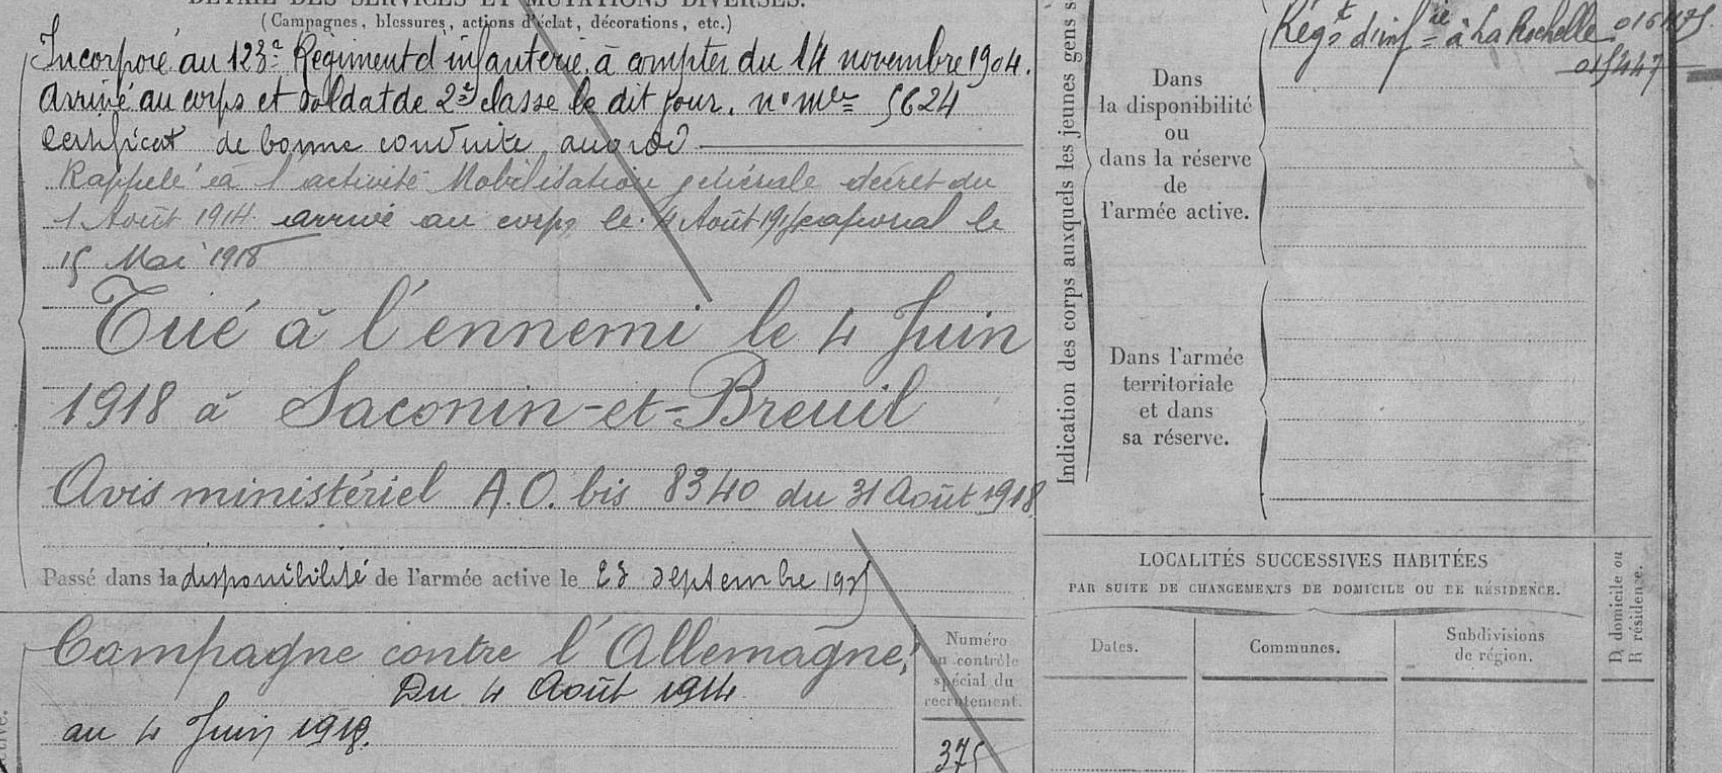 DÉTAIL DES SERVICES ET MUTATIONS DIVERSES.
(Campagnes, blessures, actions d'éclat, décorations, etc.)
Incorporé au 123e Régiment d'infanterie à compter du 14 novembre 1904.
Arrivé au corps et soldat de 2e classe le dit jour. n° mle 5624
Certificat de bonne conduite accordé
Rappelé à l'activité Mobilisation générale décret du
1 Août 1914 arrivé au corps le 4 Août 1914 caporal le
15 Mai 1918
Tué à l'ennemi le 4 Juin
1918 à Saconin-et-Breuil
Avis ministériel A.O. bis 8340 du 31 Août 1918
Passé dans la disponibilité de l'armée active le 23 septembre 190
Campagne contre l'Allemagne,
Du 4 Août 1914
au 4 Juin 1918.
Numéro
au contrôle
spécial du
recrutement.
375
Indication des corps auxquels les jeunes gens s
Dans
la disponibilité
ou
dans la réserve
de
l'armée active.
Régt d'infie à La Rochelle
015447
Dans l'armée
territoriale
et dans
sa réserve.
LOCALITÉS SUCCESSIVES HABITÉES
PAR SUITE DE CHANGEMENTS DE DOMICILE OU DE RÉSIDENCE.
Dates.
Communes.
Subdivisions
de région.
D. domicile ou
R résidence.